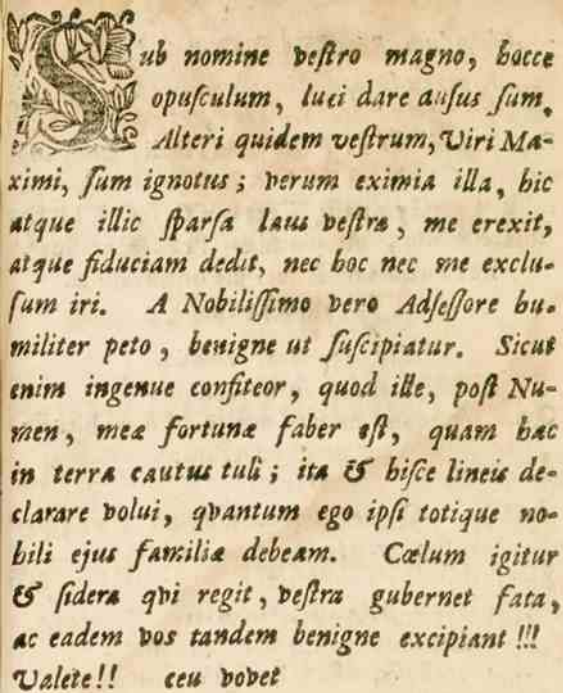 Sub nomine veſtro magno, hocce
opuſculum, luci dare auſus ſum.
Alteri quidem veſtrum, Viri Ma-
ximi, ſum ignotus; verum eximia illa, hic
atque illic ſparſa laus veſtra, me erexit,
atque fiduciam dedit, nec hoc nec me exclu-
ſum iri. A Nobiliſſimo vero Adſeſſore hu-
militer peto, benigne ut ſuſcipiatur. Sicut
enim ingenue confiteor, quod ille, poſt Nu-
men, meæ fortunæ faber eſt, quam hac
in terra cautus tuli; ita & hiſce lineis de-
clarare volui, qvantum ego ipſi totique no-
bili ejus familiæ debeam. Cœlum igitur
& ſidera qvi regit, veſtra gubernet fata,
ac eadem vos tandem benigne excipiant !!!
Valete!! ceu vovet